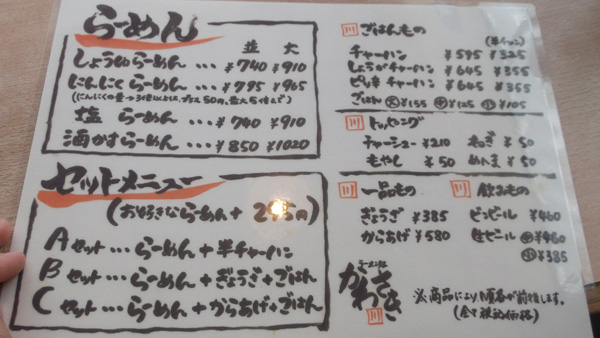 らーめん
並 大
しょうゆらーめん … ¥740 ¥910
にんにくらーめん … ¥795 ¥965
塩 らーめん … ¥740 ¥910
酒かすらーめん … ¥850 ¥1020
セットメニュー
(お好きならーめん+ 円)
Aセット … らーめん+半チャーハン
Bセット … らーめん+ぎょうざ+ごはん
Cセット … らーめん+からあげ+ごはん
川 ごはんもの
(半チャン)
チャーハン ¥595 ¥325
しょうがチャーハン ¥645 ¥355
ピリ辛チャーハン ¥645 ¥355
ごはん 大¥155 中¥125 小¥105
川 トッピング
チャーシュー ¥210 ねぎ ¥50
もやし ¥50 めんま ¥50
川 一品もの
ぎょうざ ¥385
からあげ ¥580
川 飲みもの
ビンビール ¥460
生ビール 中¥460
小¥385
ラーメン
かわさき
川
※商品により順番が前後します。
(全て税込価格)